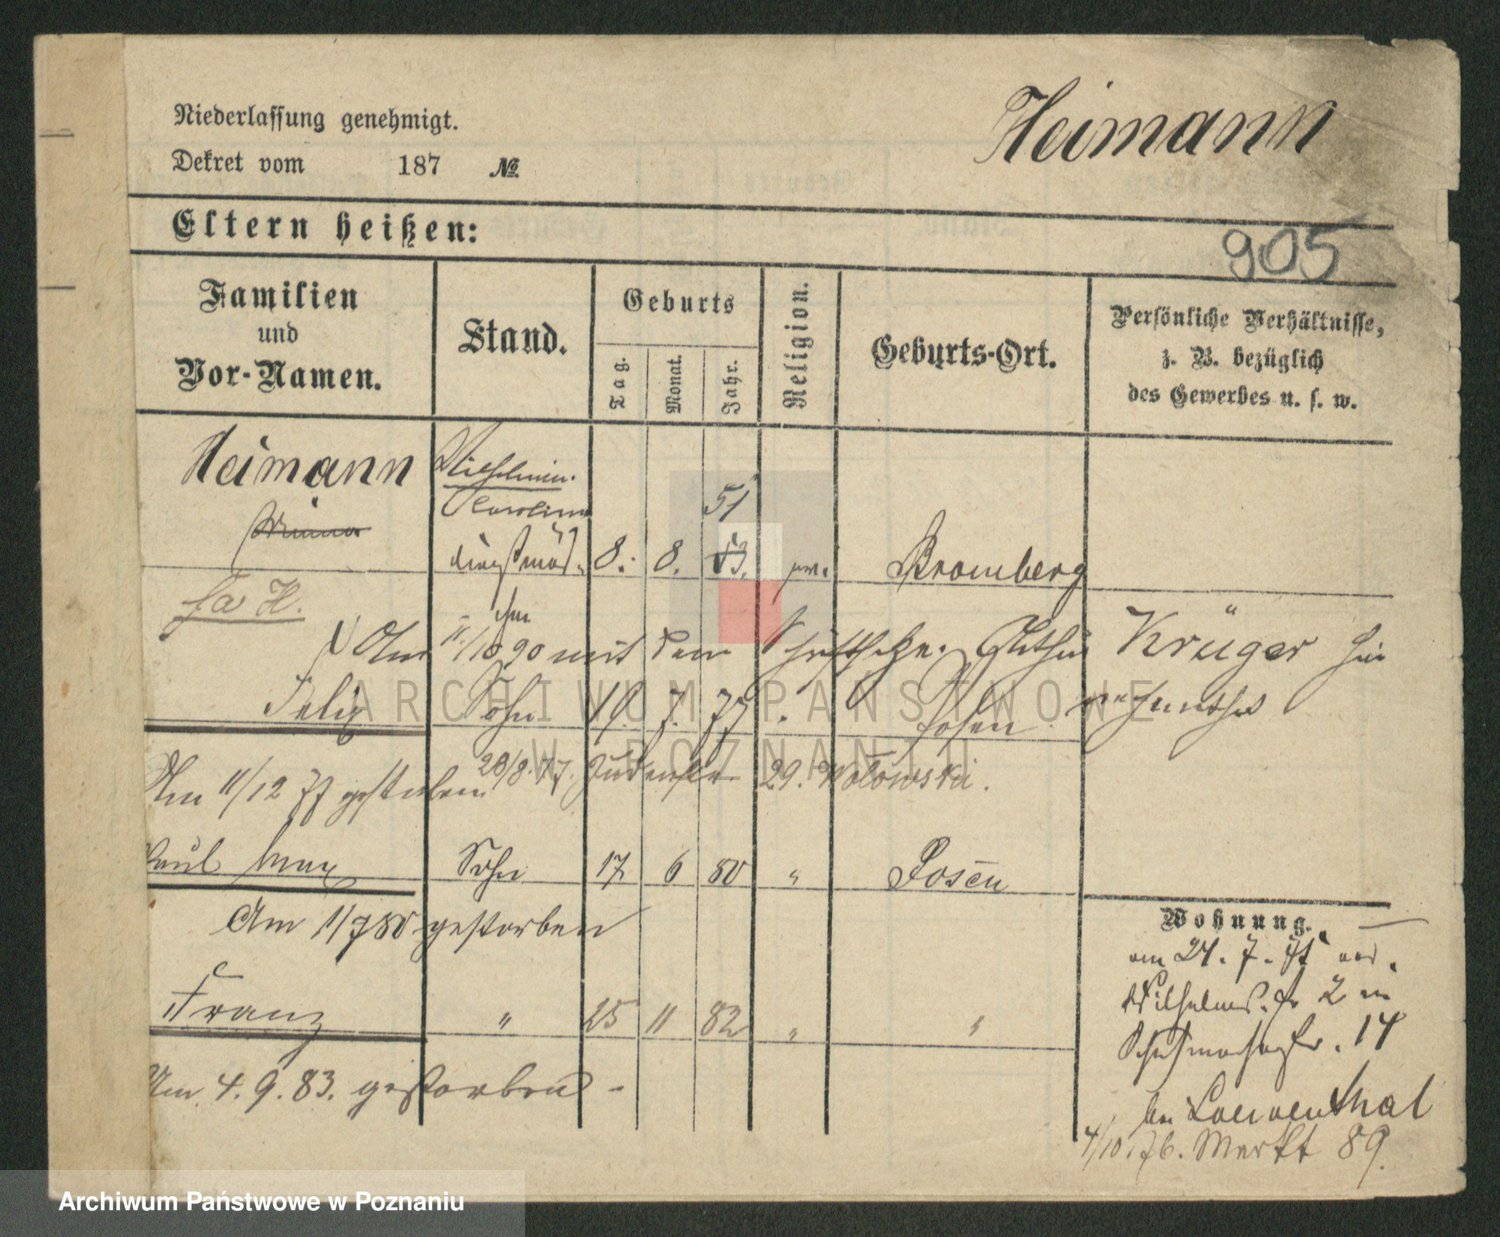 Niederlassung genehmigt.
Heimann
Dekret vom 187 №
Eltern heißen:
905
Familien und Vor-Namen.
Stand.
Geburts
Tag.
Monat.
Jahr.
Religion.
Geburts-Ort.
Persönliche Verhältnisse,
z. B. bezüglich
des Gewerbes u. s. w.
Heimann Wilhelmin.
Caroline 51
8. 8. 53. Bromberg
fa H.
Am 11/10 90 mit dem Krüger hier
Felix Sohn 19. 7. 77 Posen
Am 11/12 77 gestorben 28/8.77. 29. Wolowski.
Paul Max Sohn 17 6 80 " Posen
Am 1/7 80 gestorben
Franz " 25 11 82 " "
Am 4.9.83. gestorben
Wohnung.
am 24.7.
Wilhelms. 2
14
bei Loewenthal
4/10.76. Markt 89.
ARCHIWUM PAŃSTWOWE
W POZNANIU
Archiwum Państwowe w Poznaniu